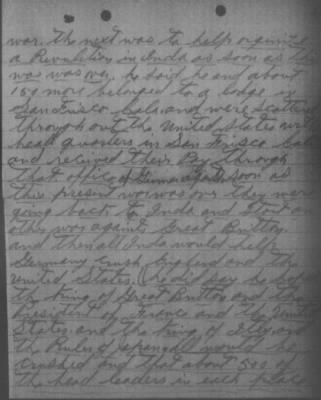 war. the next was to help organize
a Revolution in Inda as soon as this
war was over, he said he and about
150 more belonged to a lodge in
San Frisco Cala. and were scattered
through out the United States with
head quarters in San Frisco Cala
and recived their Pay through
that office, soon as
this present war was over they were
going back to Inda and Start an
other war against Great Britton
and then all Inda would help
Germany crush England and the
United States. he did say he hoped
the King of Great Britton and the
President of France and the United
States and the King of Itly, and
the Ruler of Japan all would be
crushed and that about 500 of
the head leaders in each place